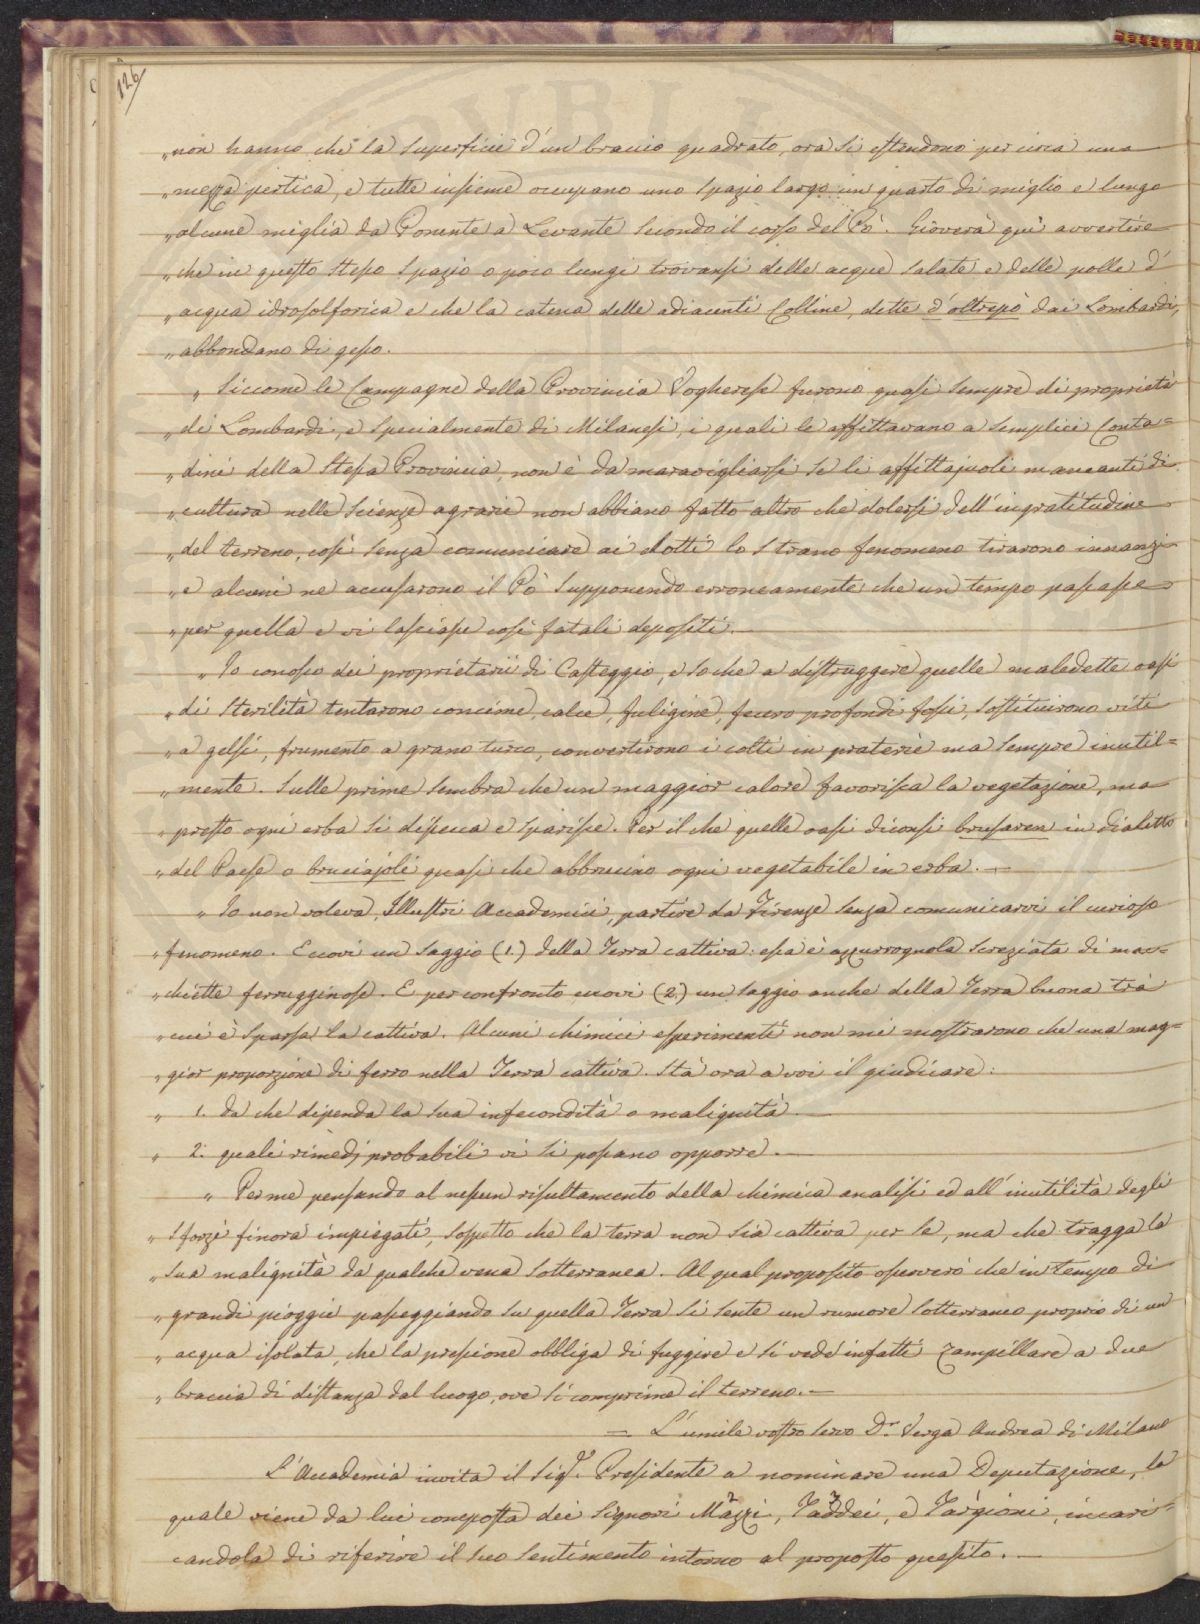 126
„non hanno che la superficie d'un braccio quadrato, ora si estendono per circa una
„mezza pertica, e tutte insieme occupano uno spazio largo un quarto di miglio e lungo
„alcune miglia da Ponente a Levante secondo il corso del Pò. Gioverà quì avvertire
„che in questo stesso spazio o poco lungi trovansi delle acque salate e delle polle d'
„acqua idrosolforica e che la catena delle adiacenti Colline, dette d'oltrepò dai Lombardi,
„abbondano di gesso.
„Siccome le Campagne della Provincia Vogherese furono quasi sempre di proprietà
„di Lombardi, e specialmente di Milanesi, i quali le affittavano a semplici Conta=
„dini della stessa Provincia, non è da maravigliarsi se li affittajuoli mancanti di
„cultura nelle scienze agrarie non abbiano fatto altro che dolersi dell'ingratitudine
„del terreno, così senza comunicare ai dotti lo strano fenomeno tirarono innanzi
„e alcuni ne accusarono il Pò supponendo erroneamente che un tempo passasse
„per quella e vi lasciasse così fatali depositi.—
„Io conosco dei proprietarii di Casteggio, e so che a distruggere quelle maledette oasi
„di sterilità tentarono concime, calce, fuligine, fecero profondi fossi, sostituirono viti
„a gelsi, frumento a grano turco, convertirono i colti in praterie ma sempre inutil=
„mente. Sulle prime sembra che un maggior calore favorisca la vegetazione, ma
„presto ogni erba si dissecca e sparisce. Per il che quelle oasi diconsi brusaren in dialetto
„del Paese o bruciajoli quasi che abbrucino ogni vegetabile in erba.—
„Io non voleva, Illustri Accademici, partire da Firenze senza comunicarvi il curioso
„fenomeno. Eccovi un saggio (1.) della Terra cattiva: essa è azzurrognola screziata di mac=
„chiette ferrugginose. E per confronto eccovi (2.) un saggio anche della Terra buona trà
„cui è sparsa la cattiva. Alcuni chimici esperimenti non mi mostrarono che una mag=
„gior proporzione di ferro nella Terra cattiva. Stà ora a voi il giudicare:
„1. da che dipenda la sua infecondità o malignità.—
„2. quali rimedj probabili vi si possano opporre.—
„Per me pensando al nessun risultamento della chimica analisi ed all'inutilità degli
„sforzi finora impiegati, sospetto che la terra non sia cattiva per se, ma che tragga la
„sua malignità da qualche vena sotterranea. Al qual proposito osserverò che in tempo di
„grandi pioggie passeggiando su quella Terra si sente un rumore sotterraneo proprio di un
„acqua isolata, che la pressione obbliga di fuggire e si vede infatti zampillare a due
„braccia di distanza dal luogo, ove si comprime il terreno.—
= L'umile vostro servo Dr. Verga Andrea di Milano
L'Accademia invita il Sigr. Presidente a nominare una Deputazione, la
quale viene da lui composta dei Signori Mazzi, Taddei, e Targioni, incari=
candola di riferire il suo sentimento intorno al proposto quesito.—